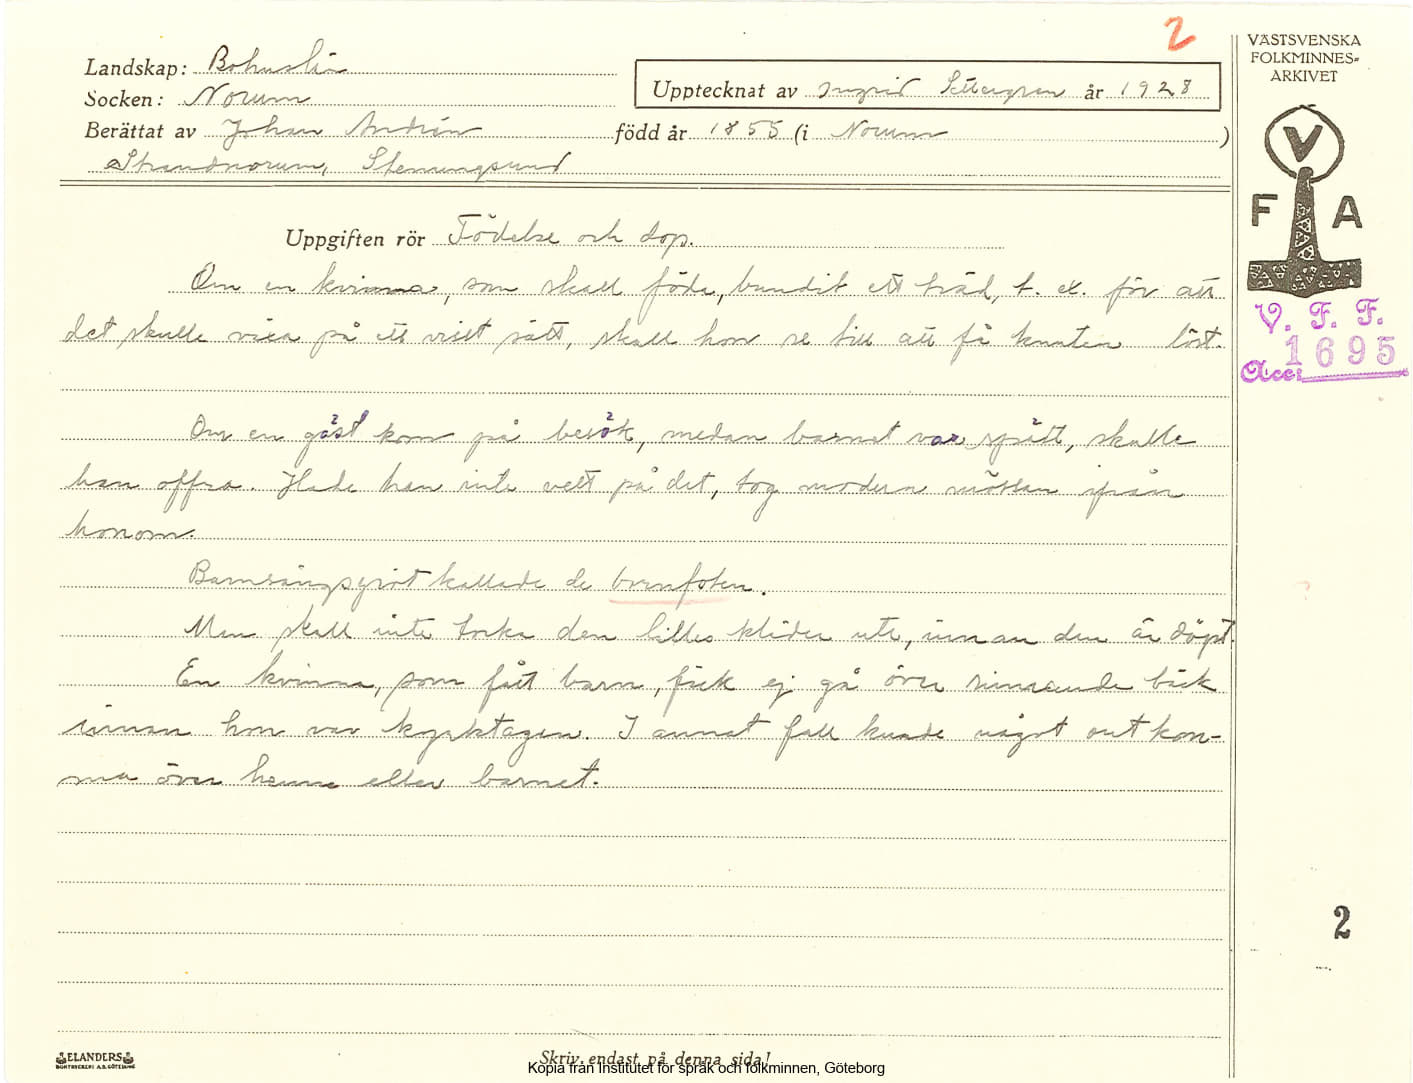 2
Landskap: Bohuslän
Socken: Norum
Upptecknat av Ingrid Settergren år 1928
Berättat av Johan Andrén född år 1855 (i Norum )
Strandnorum, Stenungsund
VÄSTSVENSKA
FOLKMINNES-
ARKIVET
V
F A
V. F. F.
Acc: 1695
Uppgiften rör Födelse och dop.
Om en kvinna, som skall föda, bundit ett träd, t. ex. för att
det skulle växa på ett visst sätt, skall hon se till att få knuten löst.
Om en gäst kom på besök, medan barnet var spätt, skulle
han offra. Hade han inte vett på det, tog modern mössan ifrån
honom.
Barnsängsgröt kallade de
Man skall inte torka den lilles kläder ute, innan den är döpt.
En kvinna, som fått barn, fick ej gå över rinnande bäck
innan hon var kyrktagen. I annat fall kunde något ont kom-
ma över henne eller barnet.
2
ELANDERS
BOKTRYCKERI A.B. GÖTEBORG
Skriv endast på denna sida!
Kopia från Institutet för språk och folkminnen, Göteborg